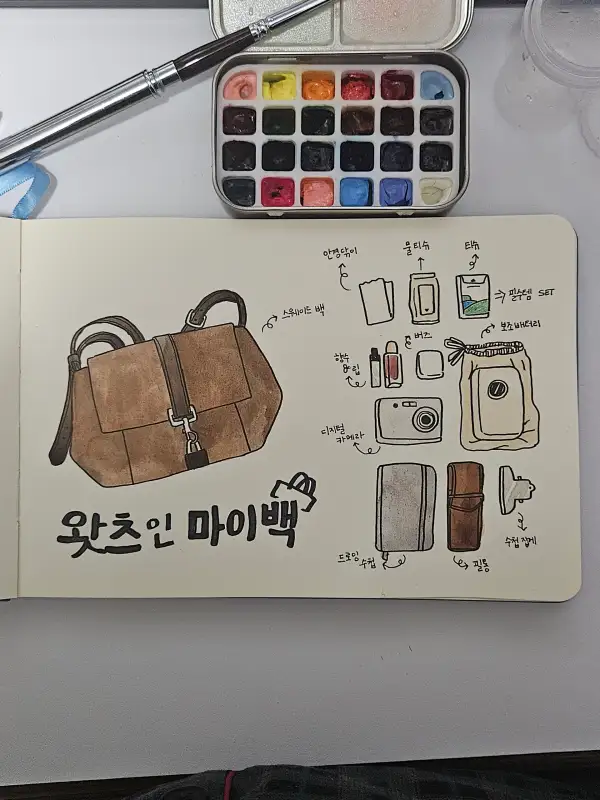 스웨이드 백
왓츠인 마이백
안경닦이
물티슈
티슈
필수템 SET
보조배터리
버즈
향수
&립
디지털
카메라
드로잉
수첩
필통
수첩 집게